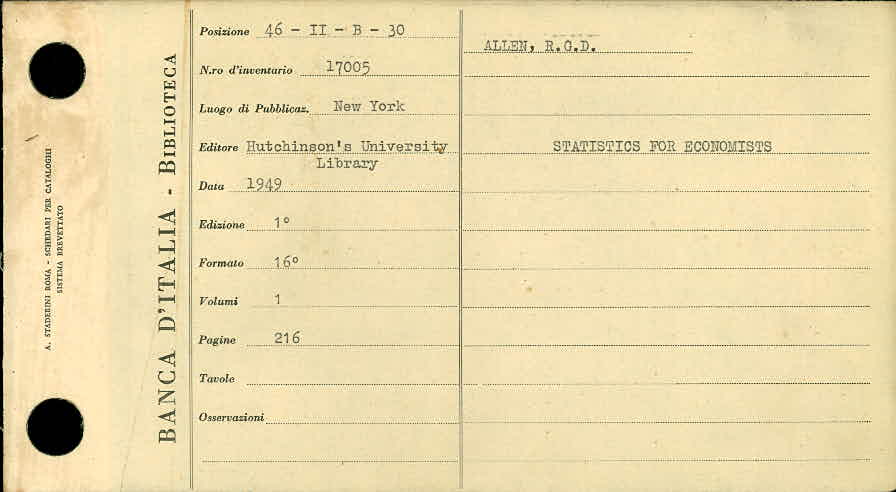 A. STADERINI ROMA - SCHEDARI PER CATALOGHI
SISTEMA BREVETTATO
BANCA D'ITALIA - BIBLIOTECA
Posizione 46 - II - B - 30
N.ro d'inventario 17005
Luogo di Pubblicaz. New York
Editore Hutchinson's University
Library
Data 1949
Edizione 1°
Formato 16°
Volumi 1
Pagine 216
Tavole
Osservazioni
ALLEN, R.G.D.
STATISTICS FOR ECONOMISTS